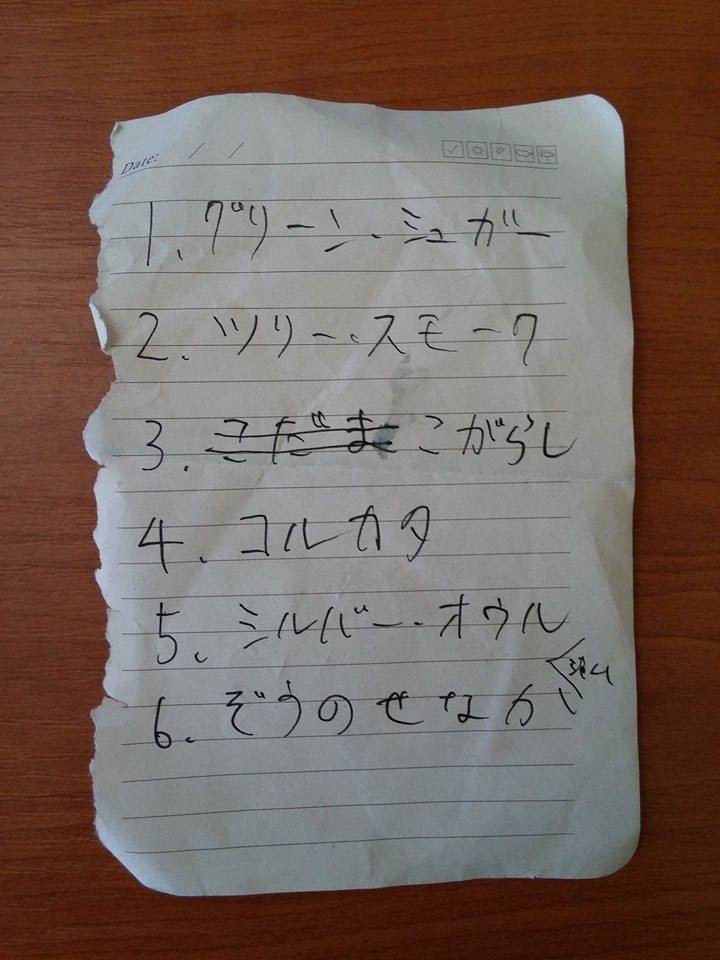 Date: / /
1. グリーン・シュガー
2. ツリー・スモーク
3. こだま こがらし
4. コルカタ
5. シルバー・オウル
6. ぞうのせなか